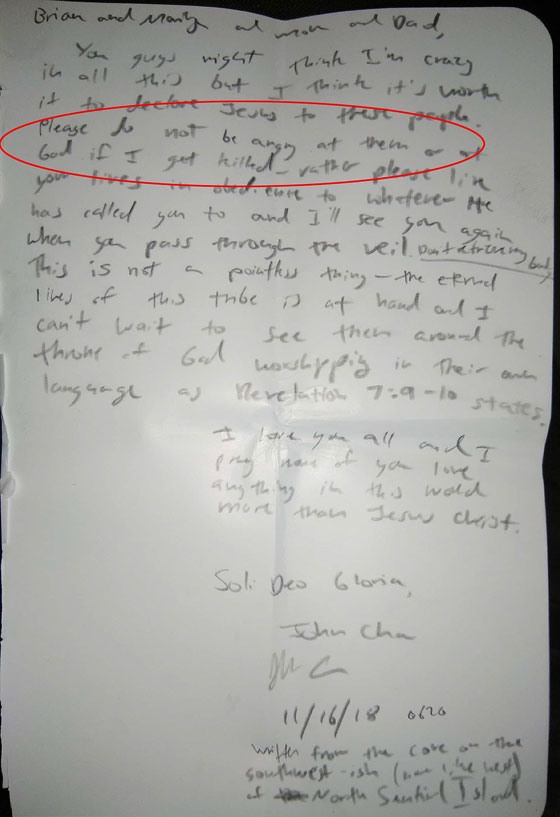 Brian and Marilyn and mom and Dad,
You guys might think I'm crazy
in all this but I think it's worth
it to declare Jesus to these people.
Please do not be angry at them or at
God if I get killed – rather please live
your lives in obedience to whatever He
has called you to and I'll see you again
when you pass through the veil. Don't retrieve my body
This is not a pointless thing – the eternal
lives of this tribe is at hand and I
can't wait to see them around the
throne of God worshipping in their own
language as Revelation 7:9-10 states.
I love you all and I
pray none of you love
anything in this world
more than Jesus Christ.
Soli Deo Gloria,
John Chau
11/16/18 0620
written from the cove on the
southwest-ish (more like west)
of North Sentinel Island.